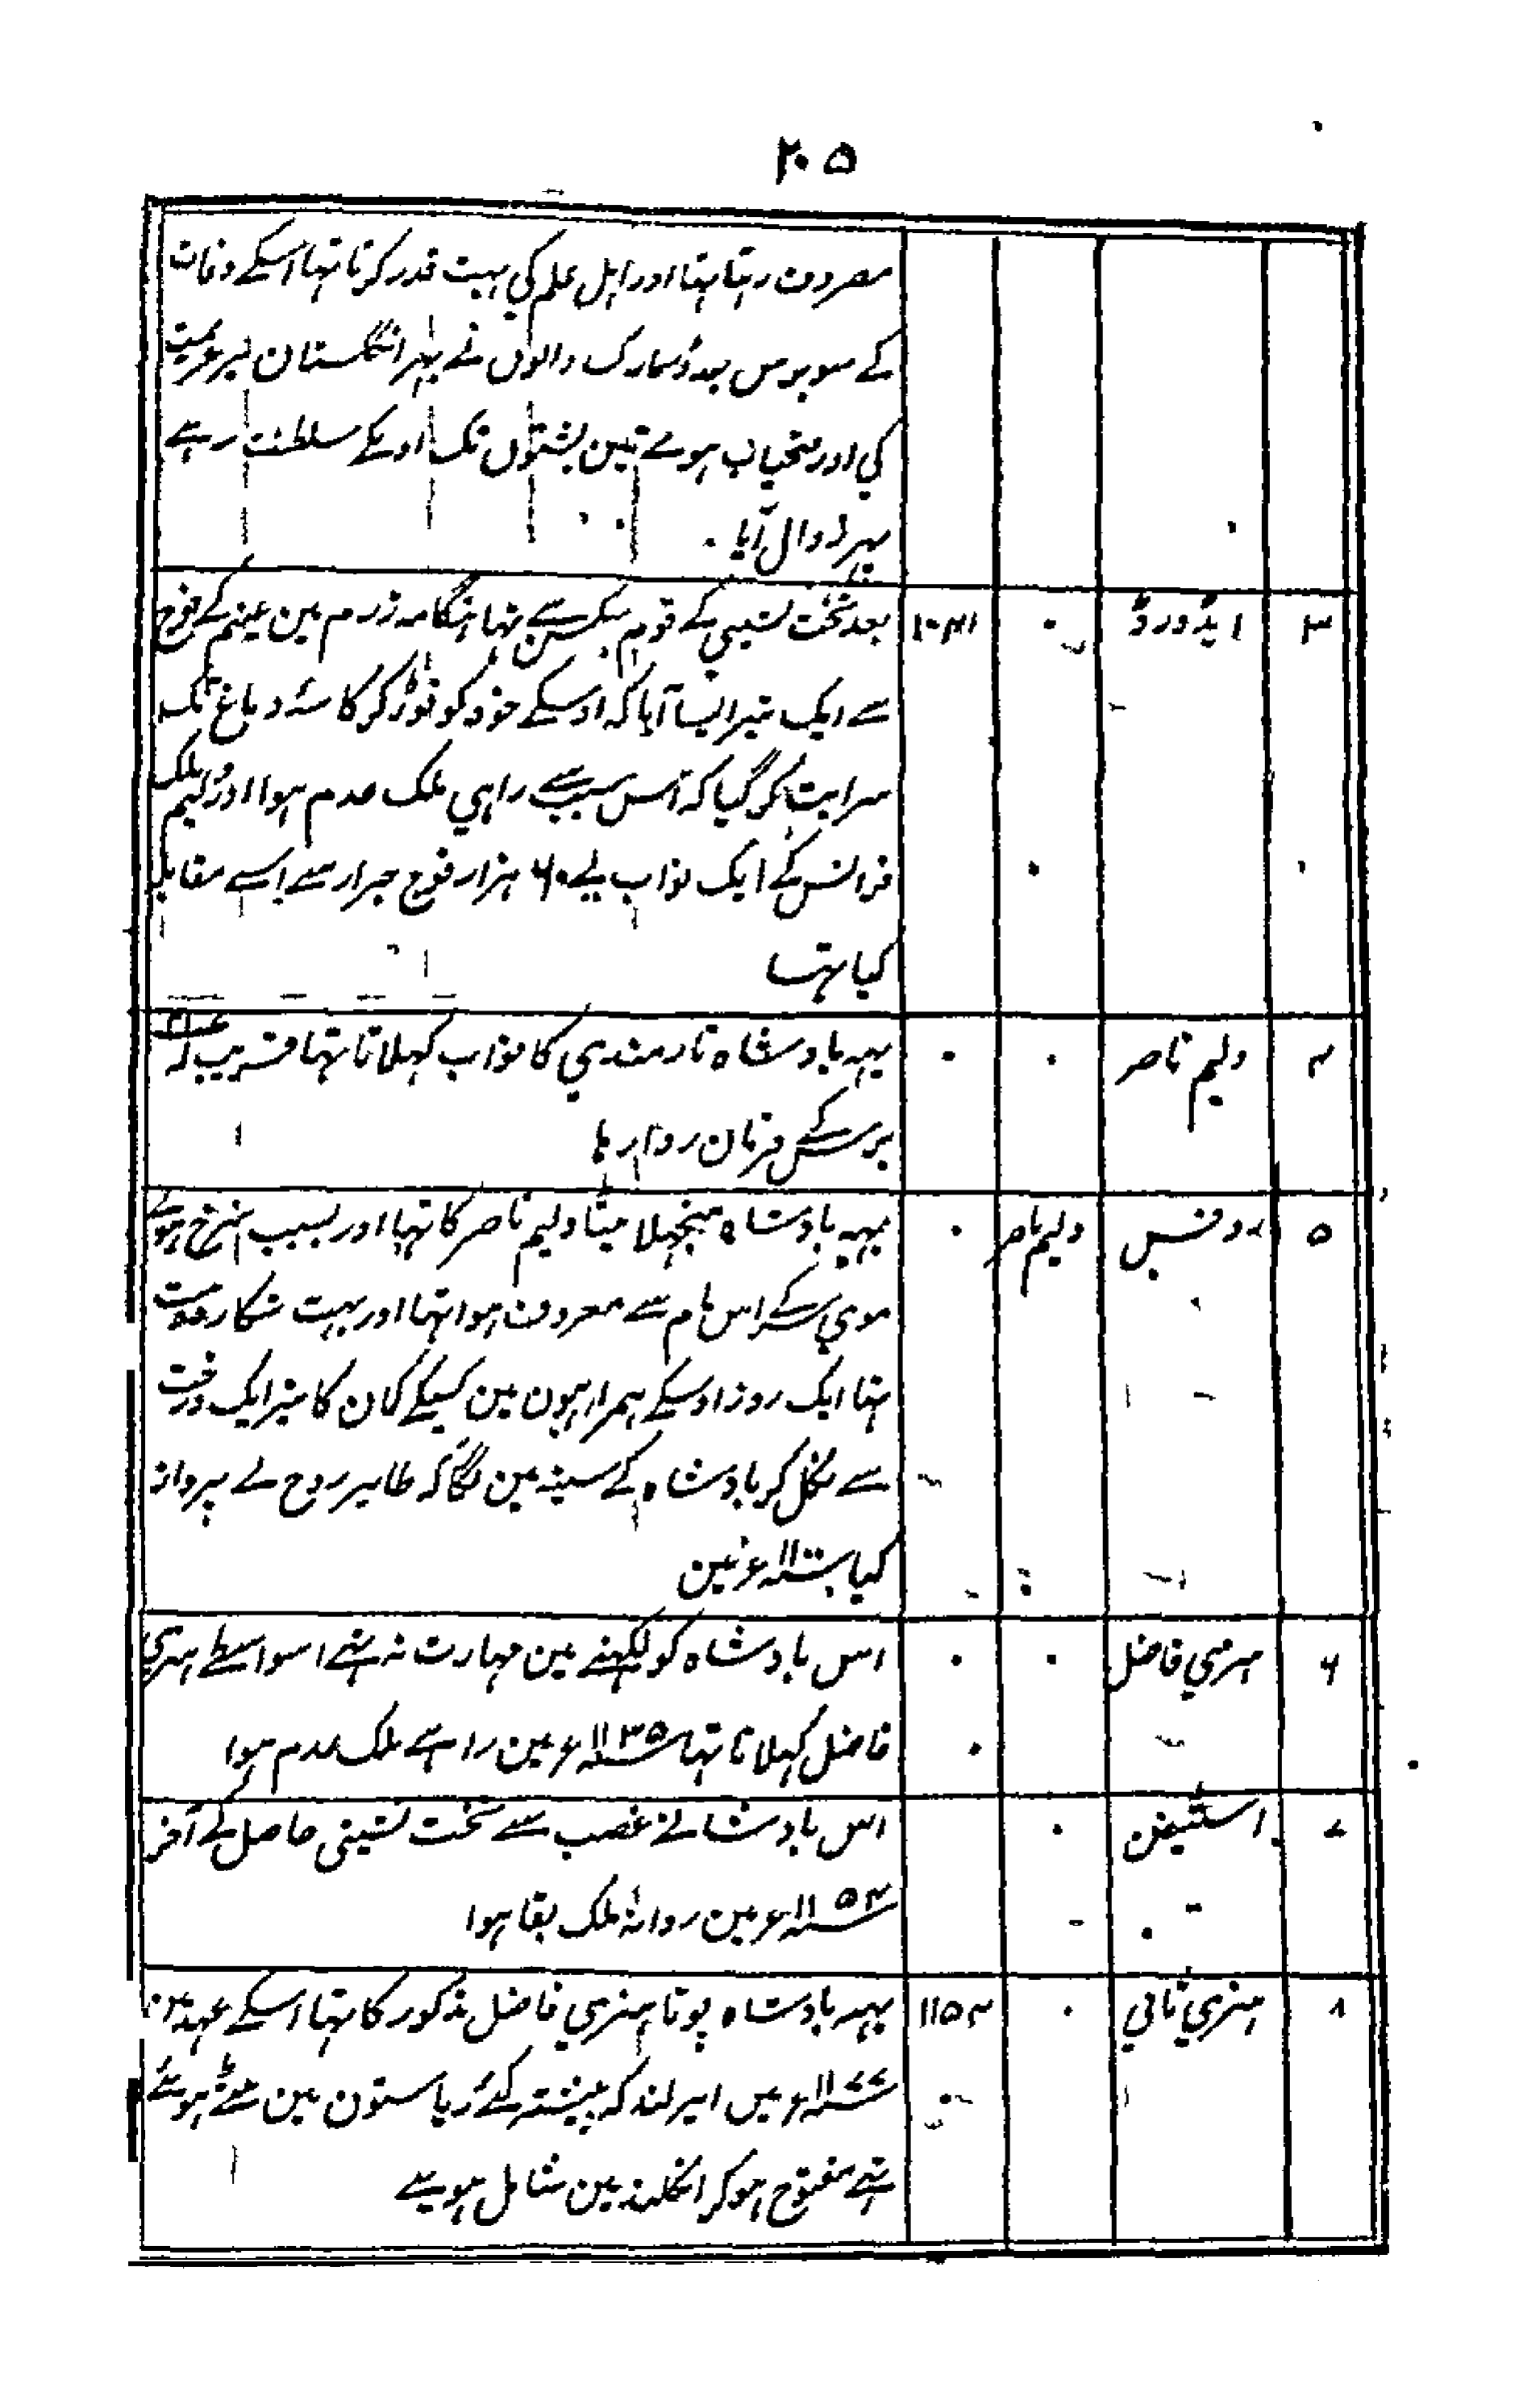 ۲۰۵
مصروف رہتا تہا اور اہل علم کي بہت قدر کرتا تہا اسکے وفات
کے سو برس بعد ڈنمارک والوں نے پہر انگلستان پر عزیمت
کي اور فتحیاب ہوے تین پشتوں تک اونکے سلطنت رہے
پہر زوال آیا
۳ ایڈورڈ ۰ ۱۰۴۱ بعد تخت نشیني کے قوم سکس سے تہا ہنگامہ رزم مین غینم کے فوج
سے ایک تیر ایسا آیا کہ اوسکے خود کو توڑ کر کاسۂ دماغ تک
سرایت کر گیا کہ اس سبب سے راہي ملک عدم ہوا اور ولیم ملک
فرانس کے ایک نواب نے ۶۰ ہزار فوج جرار سے اسے مقابلہ
کیا تہا
۴ ولیم ناصر ۰ ۰ یہہ بادشاہ نارمندي کا نواب کہلاتا تہا قریب
برس کے فرمان روا رہا
۵ روفس ولیم ناصر ۰ یہہ بادشاہ منجہلا بیٹا ولیم ناصر کا تہا اور بسبب سرخ ہونے
موي سر کے اس نام سے معروف ہوا تہا اور بہت شکار دوست
تہا ایک روز اوسکے ہمراہیون مین کسیکے کمان کا تیر ایک درخت
سے نکل کر بادشاہ کے سینہ مین لگا کہ طایر روح نے پرواز
کیا سنہ ۱۱۰۰ء مین
۶ ہنري فاضل ۰ ۰ اس بادشاہ کو لکہنے مین مہارت نہ تہے اسواسطے ہنري
فاضل کہلاتا تہا سنہ ۱۱۳۵ء مین راہے ملک عدم ہوا
۷ اسٹیفن ۰ اس بادشا نے غصب سے تخت نشینی حاصل کے آخر
سنہ ۱۱۵۴ء مین روانۂ ملک بقا ہوا
۸ ہنري ثاني ۰ ۱۱۵۴ یہہ بادشاہ پوتا ہنري فاضل مذکور کا تہا اسکے عہد مین
سنہ ۱۱۷۷ء میں ایرلند کہ پیشتر کئے ریاستون مین بٹے ہوئے
تہے مفتوح ہو کر انگلند مین شامل ہویے